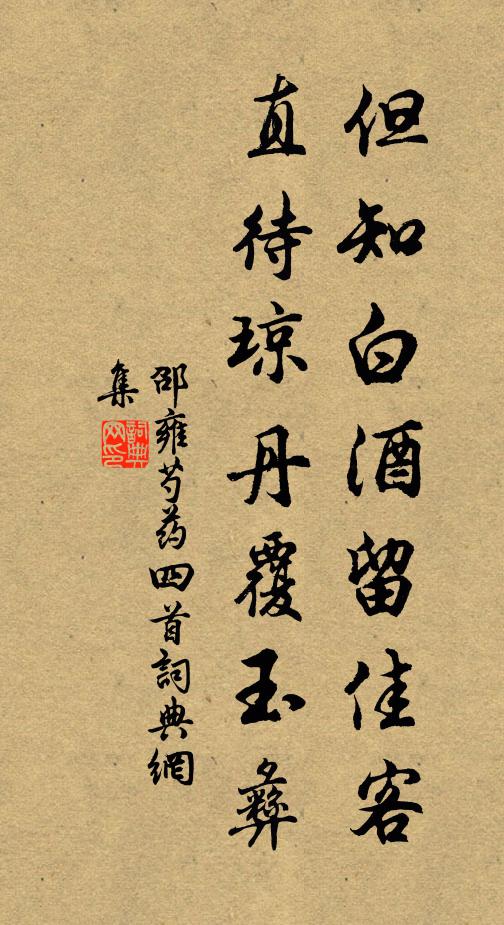 但知白酒留佳客
直待琼丹覆玉彝
邵雍芍药四首詞典網
集
詞典網印